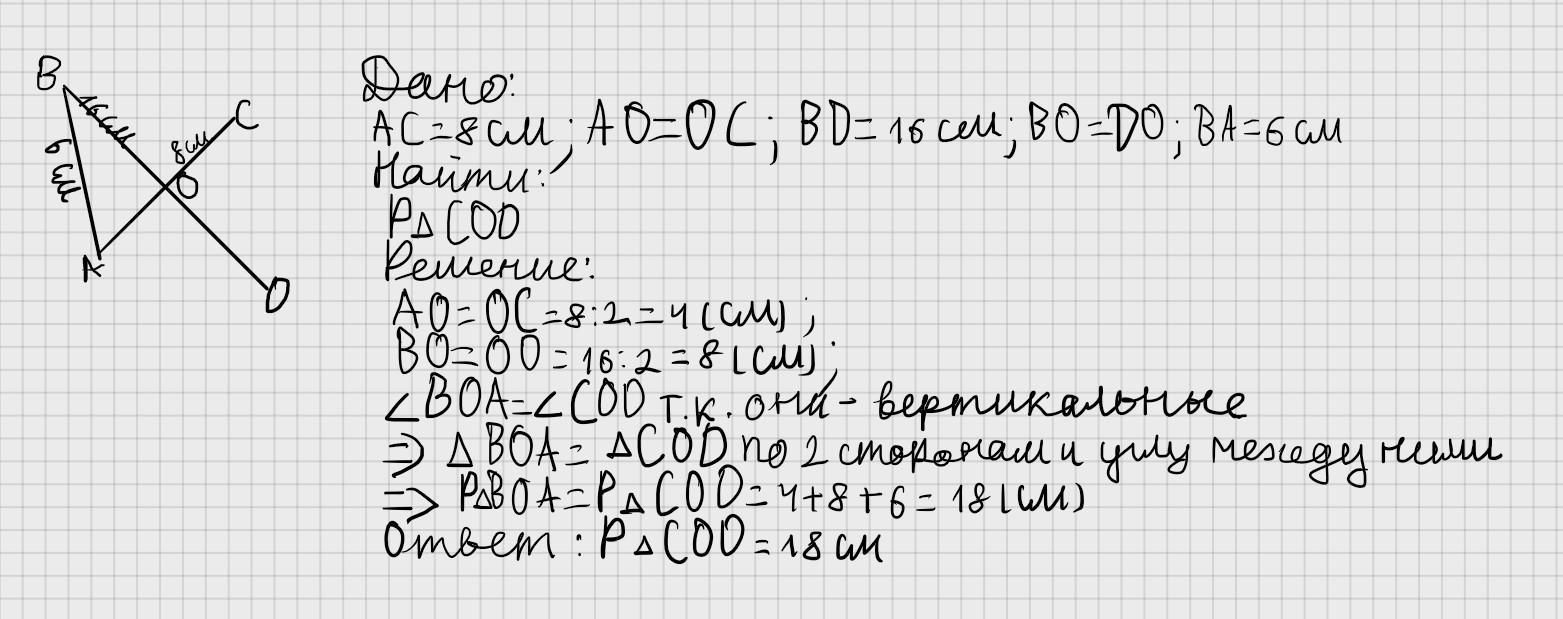 B
C
16 см
8 см
6 см
O
A
D
Дано:
AC=8 см; AO=OC; BD=16 см; BO=DO; BA=6 см
Найти:
P△COD
Решение:
AO=OC=8:2=4 (см);
BO=OD=16:2=8 (см);
∠BOA=∠COD т.к. они - вертикальные
=> △BOA=△COD по 2 сторонам и углу между ними
=> P△BOA=P△COD=4+8+6=18 (см)
Ответ: P△COD=18 см